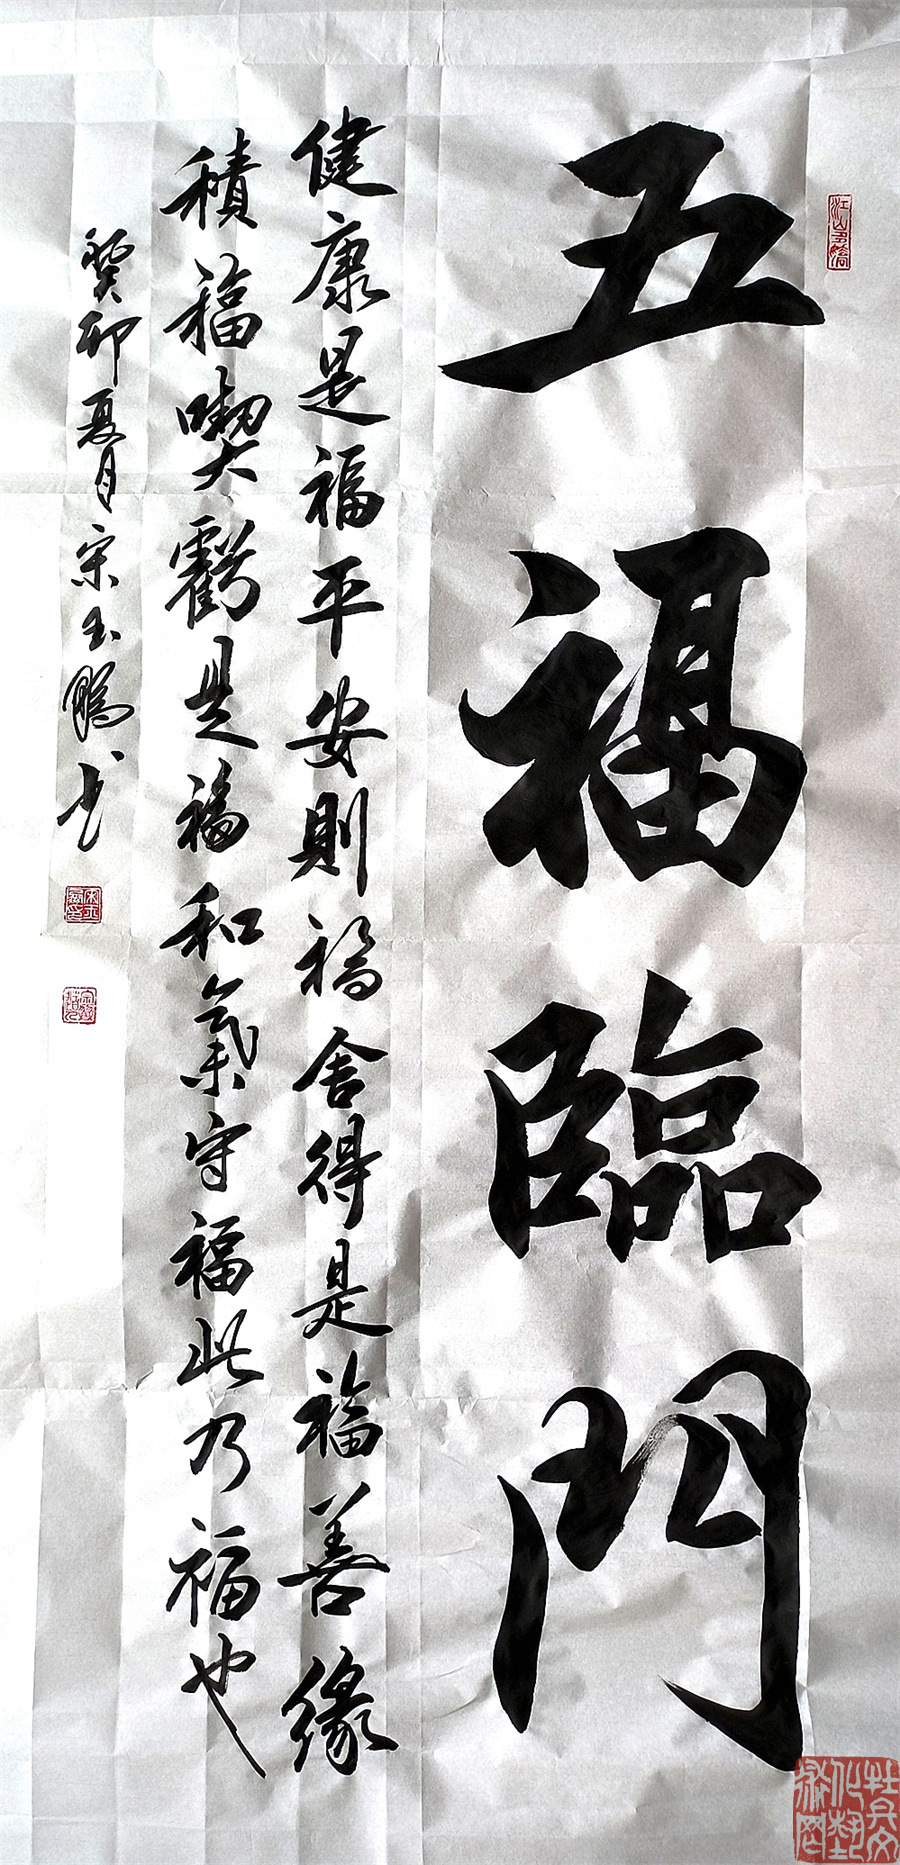 五福臨門
健康是福平安則福舍得是福善缘
積福喫虧是福和氣守福此乃福也
癸卯夏月宋玉鵬书
江山多嬌